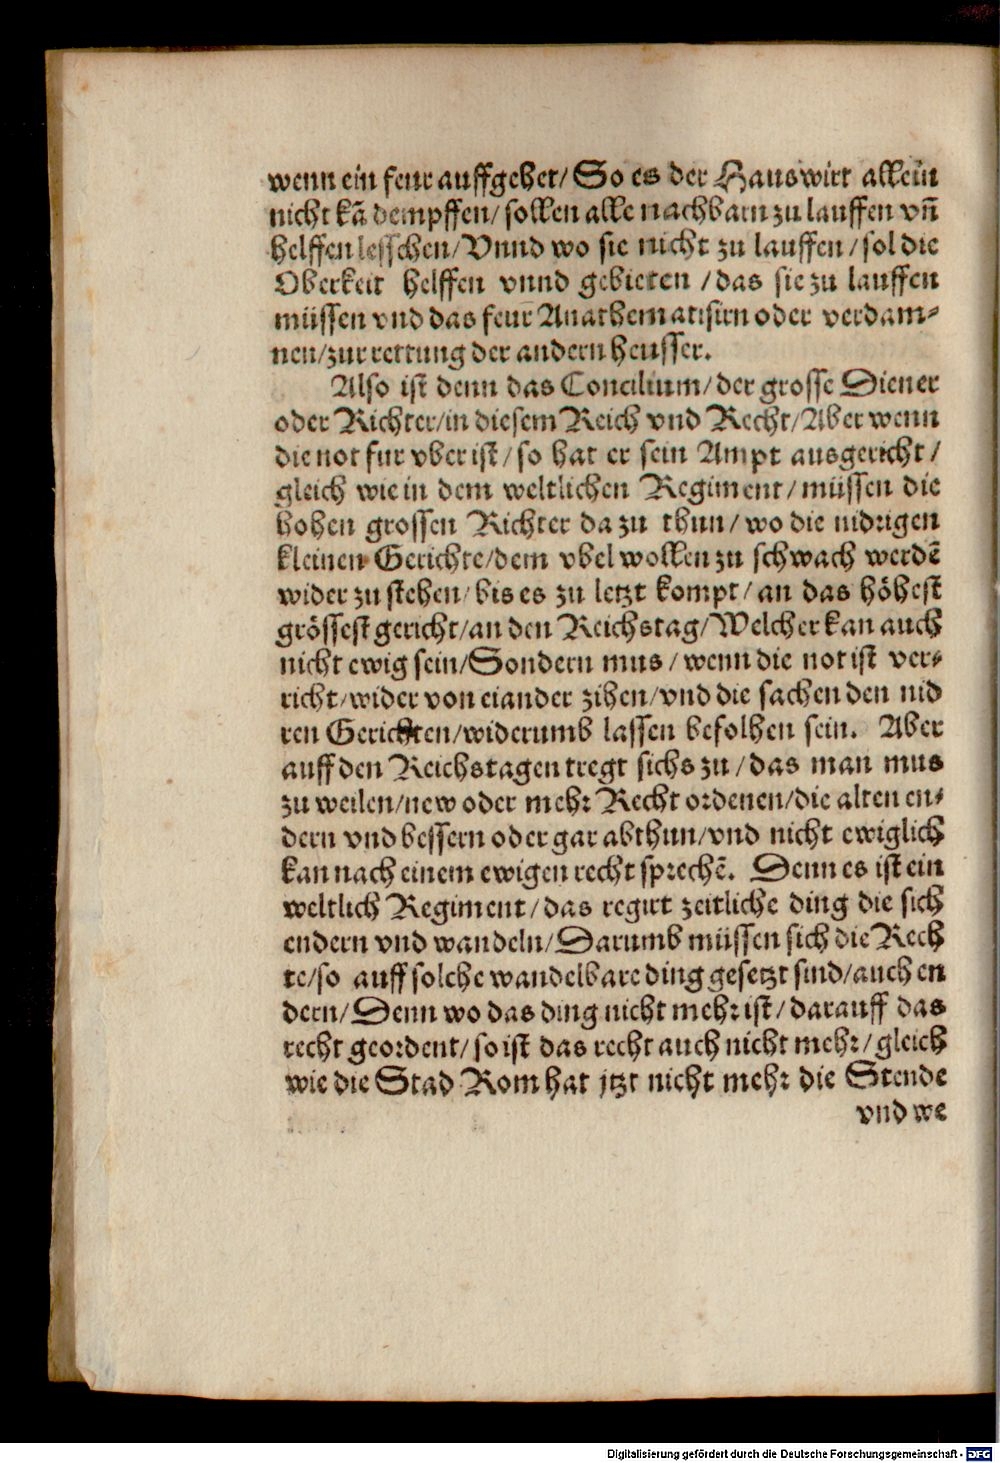 wenn ein feur auffgehet/ So es der Hauswirt allein
nicht kã dempffen/ sollen alle nachbarn zu lauffen vñ
helffen lesschen/ Vnnd wo sie nicht zu lauffen/ sol die
Oberkeit helffen vnnd gebieten /das sie zu lauffen
müssen vnd das feur Anathematisirn oder verdam-
nen/zur rettung der andern heusser.
Also ist denn das Concilium/ der grosse Diener
oder Richter/in diesem Reich vnd Recht/ Aber wenn
die not fur vber ist/ so hat er sein Ampt ausgericht /
gleich wie in dem weltlichen Regiment/ müssen die
hohen grossen Richter da zu thun/ wo die nidrigen
kleinen Gerichte/dem vbel wollen zu schwach werdẽ
wider zu stehen/ bis es zu letzt kompt/ an das höhest
grössest gericht/an den Reichstag/ Welcher kan auch
nicht ewig sein/Sondern mus / wenn die not ist ver-
richt/wider von eiander zihen/vnd die sachen den nid
ren Gerichten/widerumb lassen befolhen sein. Aber
auff den Reichstagen tregt sichs zu / das man mus
zu weilen/new oder mehr Recht ordenen/die alten en-
dern vnd bessern oder gar abthun/vnd nicht ewiglich
kan nach einem ewigen recht sprechẽ. Denn es ist ein
weltlich Regiment/ das regirt zeitliche ding die sich
endern vnd wandeln/ Darumb müssen sich die Rech
te/so auff solche wandelbare ding gesetzt sind/auch en
dern/ Denn wo das ding nicht mehr ist/ darauff das
recht geordent/ so ist das recht auch nicht mehr/ gleich
wie die Stad Rom hat jtzt nicht mehr die Stende
vnd we
Digitalisierung gefördert durch die Deutsche Forschungsgemeinschaft - DFG